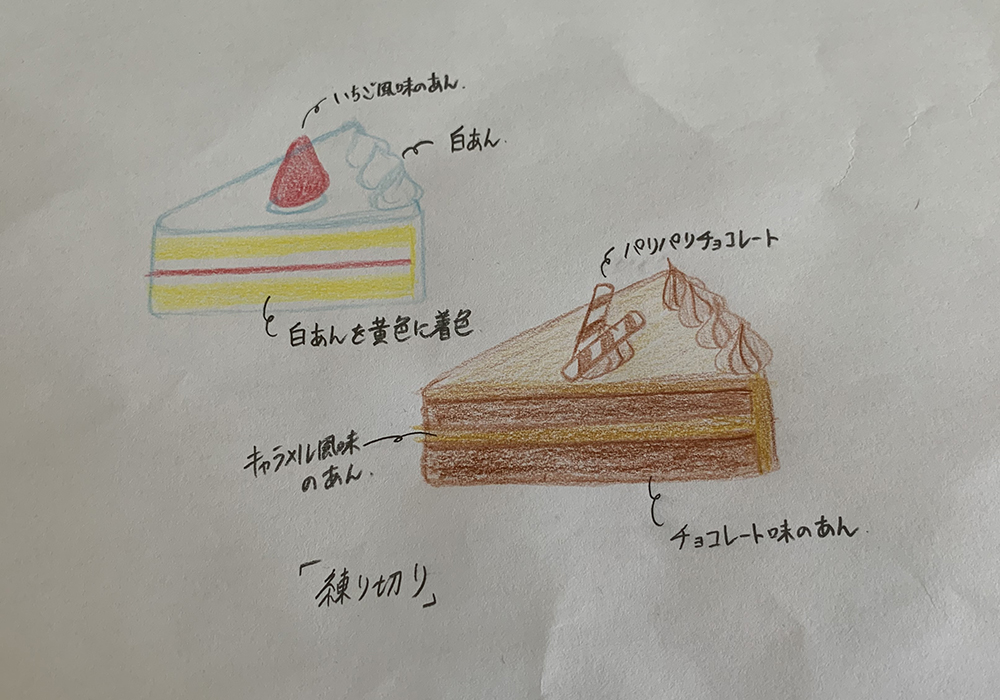 いちご風味のあん.
白あん.
白あんを黄色に着色
パリパリチョコレート
キャラメル風味
のあん.
チョコレート味のあん.
「練り切り」